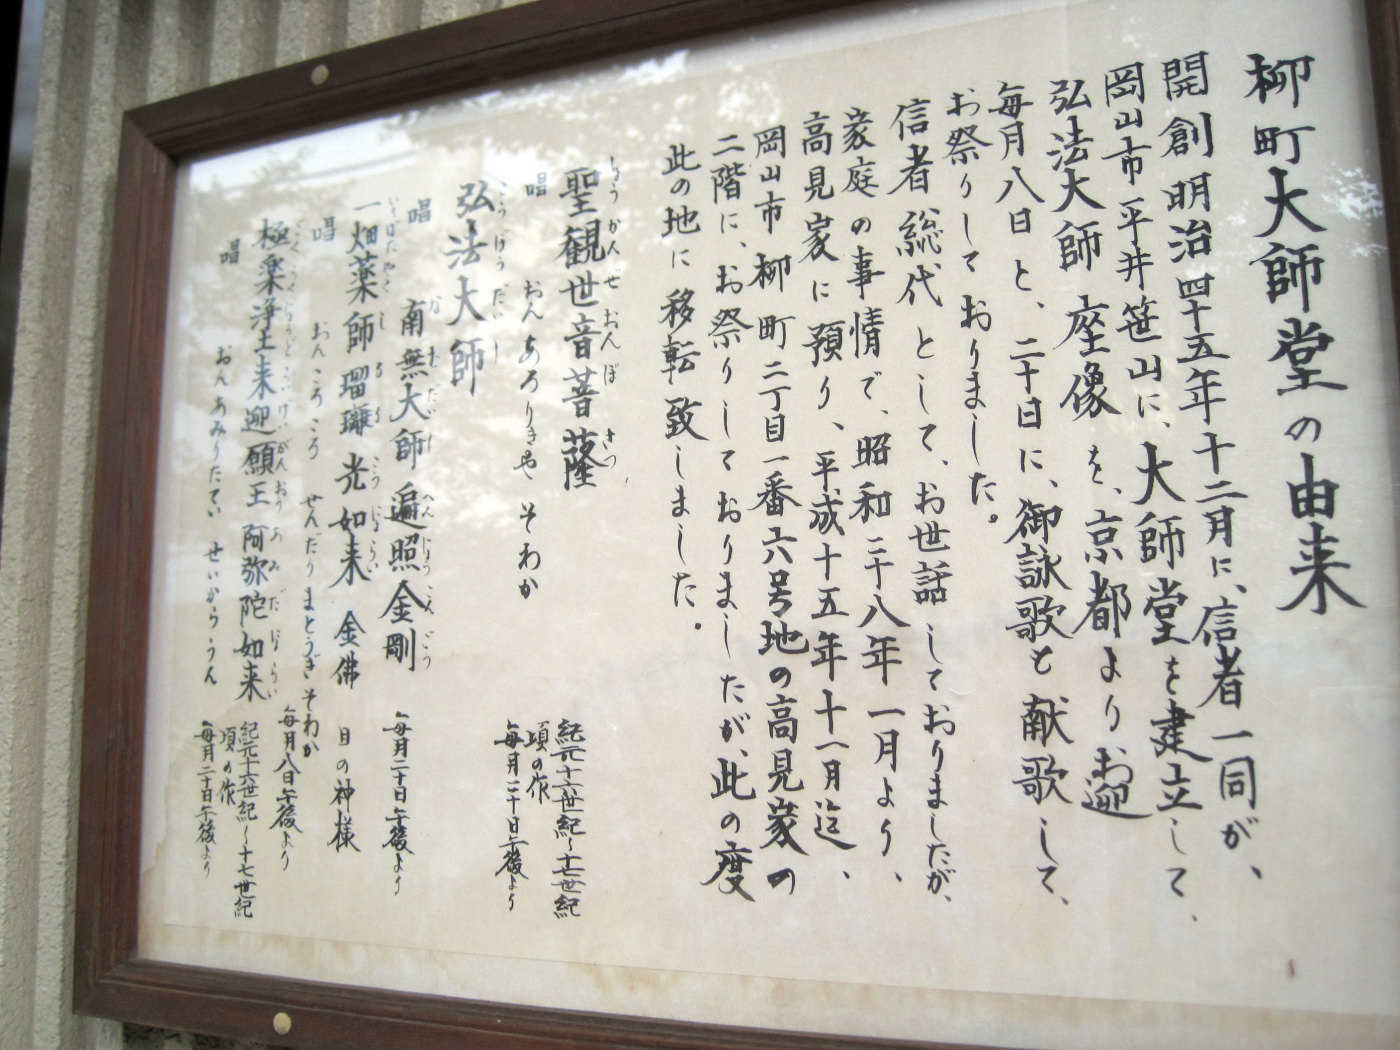 柳町大師堂の由来
開創明治四十五年十二月に、信者一同が、
岡山市平井笹山に、大師堂を建立して、
弘法大師座像を、京都より、お迎
毎月八日と、二十日に、御詠歌も献歌して、
お祭りしておりました。
信者総代として、お世話しておりましたが、
家庭の事情で、昭和三十八年一月より、
高見家に預り、平成十五年十一月迄、
岡山市柳町二丁目一番六号地の高見家の
二階に、お祭りしておりましたが、此の度
此の地に移転致しました。
しょうかんぜおんぼさつ
聖観世音菩薩
紀元十六世紀〜十七世紀
頃の作
唱 おんあろりきゃ そわか
毎月二十日午後より
こうぼうだいし
弘法大師
なむだいしへんじょうこんごう
唱 南無大師遍照金剛
毎月二十日午後より
いちばたやくしるりこうにょらい
一畑薬師瑠璃光如来 金佛 目の神様
唱 おんころころ せんだりまとうぎそわか
毎月八日午後より
ごくらくじょうどらいげいがんおうあみだにょらい
極楽浄土来迎願王 阿弥陀如来
紀元十六世紀〜十七世紀
頃の作
唱 おんあみりたてい せいからうん
毎月二十日午後より